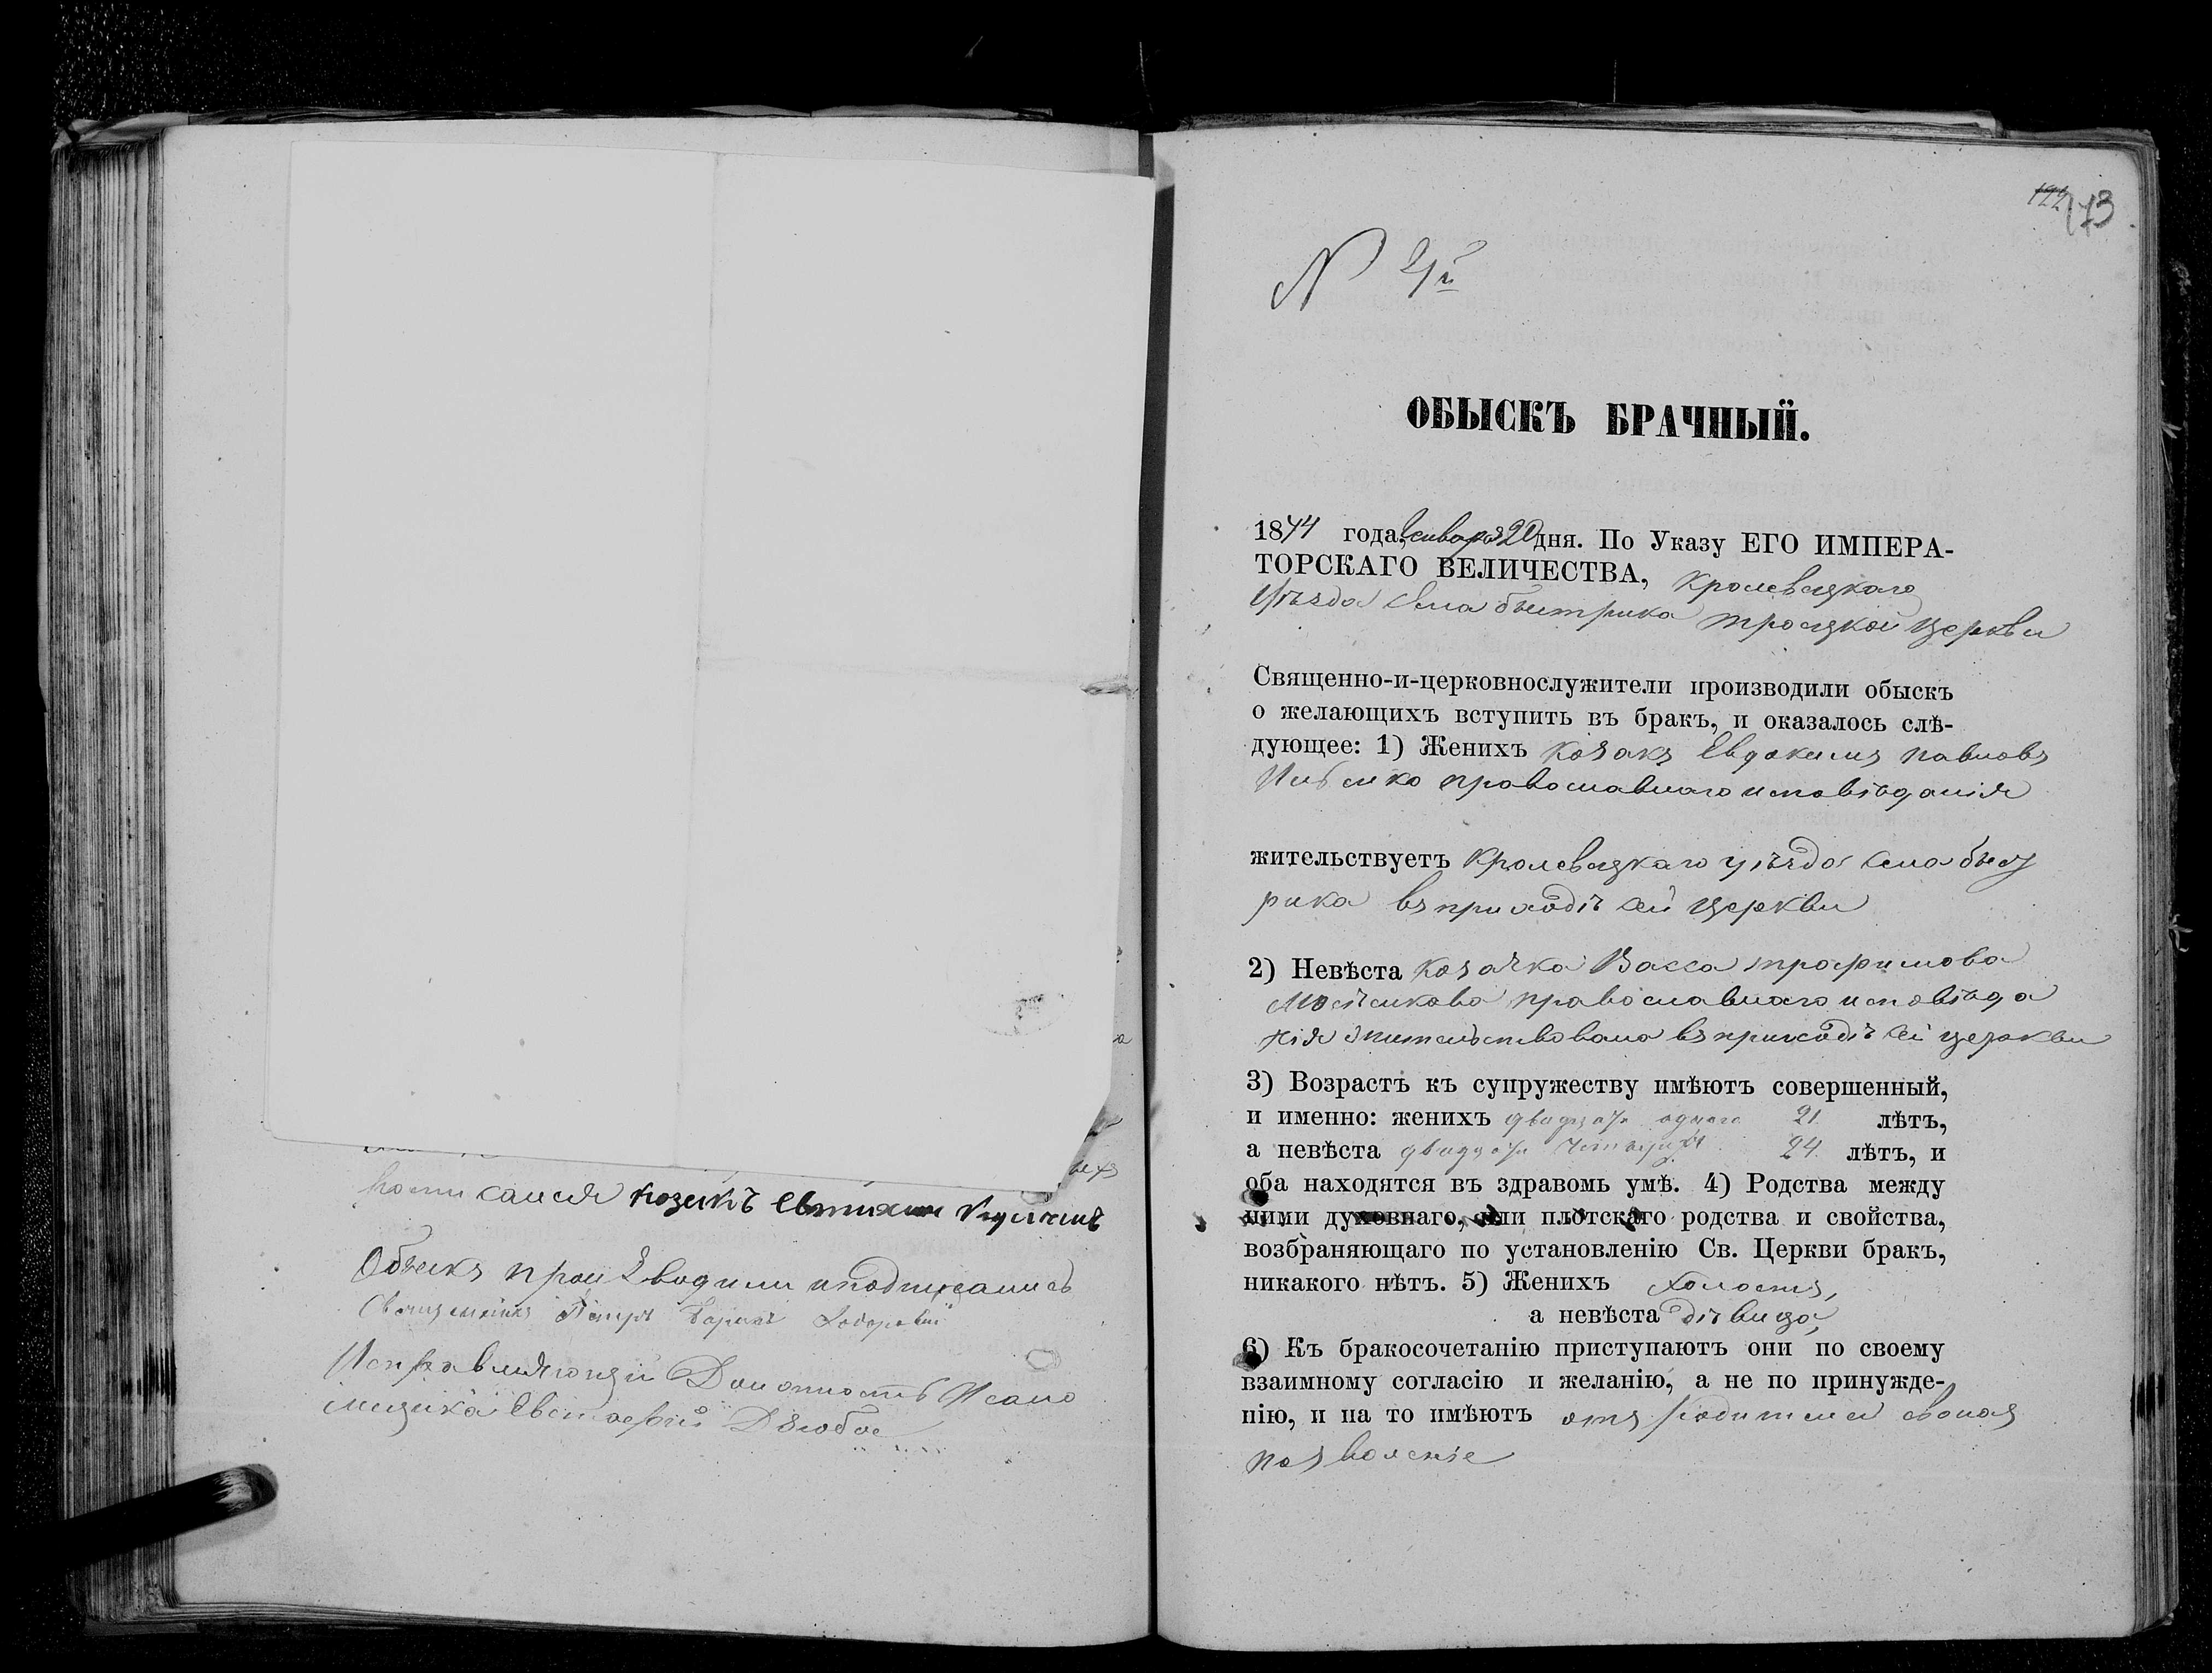 росписался козакъ Евтихий
Обыскъ производили и подписались
Священникъ Петръ
Исправляющій Должность Псало
мщика Евстафий Дзюба
173
N
ОБЫСКЪ БРАЧНЫЙ.
1874 года, Января 20 дня. По Указу ЕГО ИМПЕРА-
ТОРСКАГО ВЕЛИЧЕСТВА, Кролевецкаго
Уѣзда села быстрика троецкой церкви
Священно-и-церковнослужители производили обыскъ
о желающихъ вступить въ бракъ, и оказалось слѣ-
дующее: 1) Женихъ козакъ Евдокимъ павловъ
православнаго исповѣданія
жительствуетъ Кролевецкаго уѣзда села быст
рика въ приходѣ сей церкви
2) Невѣста козачка Васса трофимова
православнаго исповѣда
нія жительствовала въ приходѣ сей церкви
3) Возрастъ къ супружеству имѣютъ совершенный,
и именно: женихъ двадцать одного 21 лѣтъ,
а невѣста двадцать четыри 24 лѣтъ, и
оба находятся въ здравомъ умѣ. 4) Родства между
ними духовнаго, или плотскаго родства и свойства,
возбраняющаго по установленію Св. Церкви бракъ,
никакого нѣтъ. 5) Женихъ холостъ,
а невѣста дѣвица,
6) Къ бракосочетанію приступаютъ они по своему
взаимному согласію и желанію, а не по принужде-
нію, и на то имѣютъ отъ родителей своихъ
позволеніе